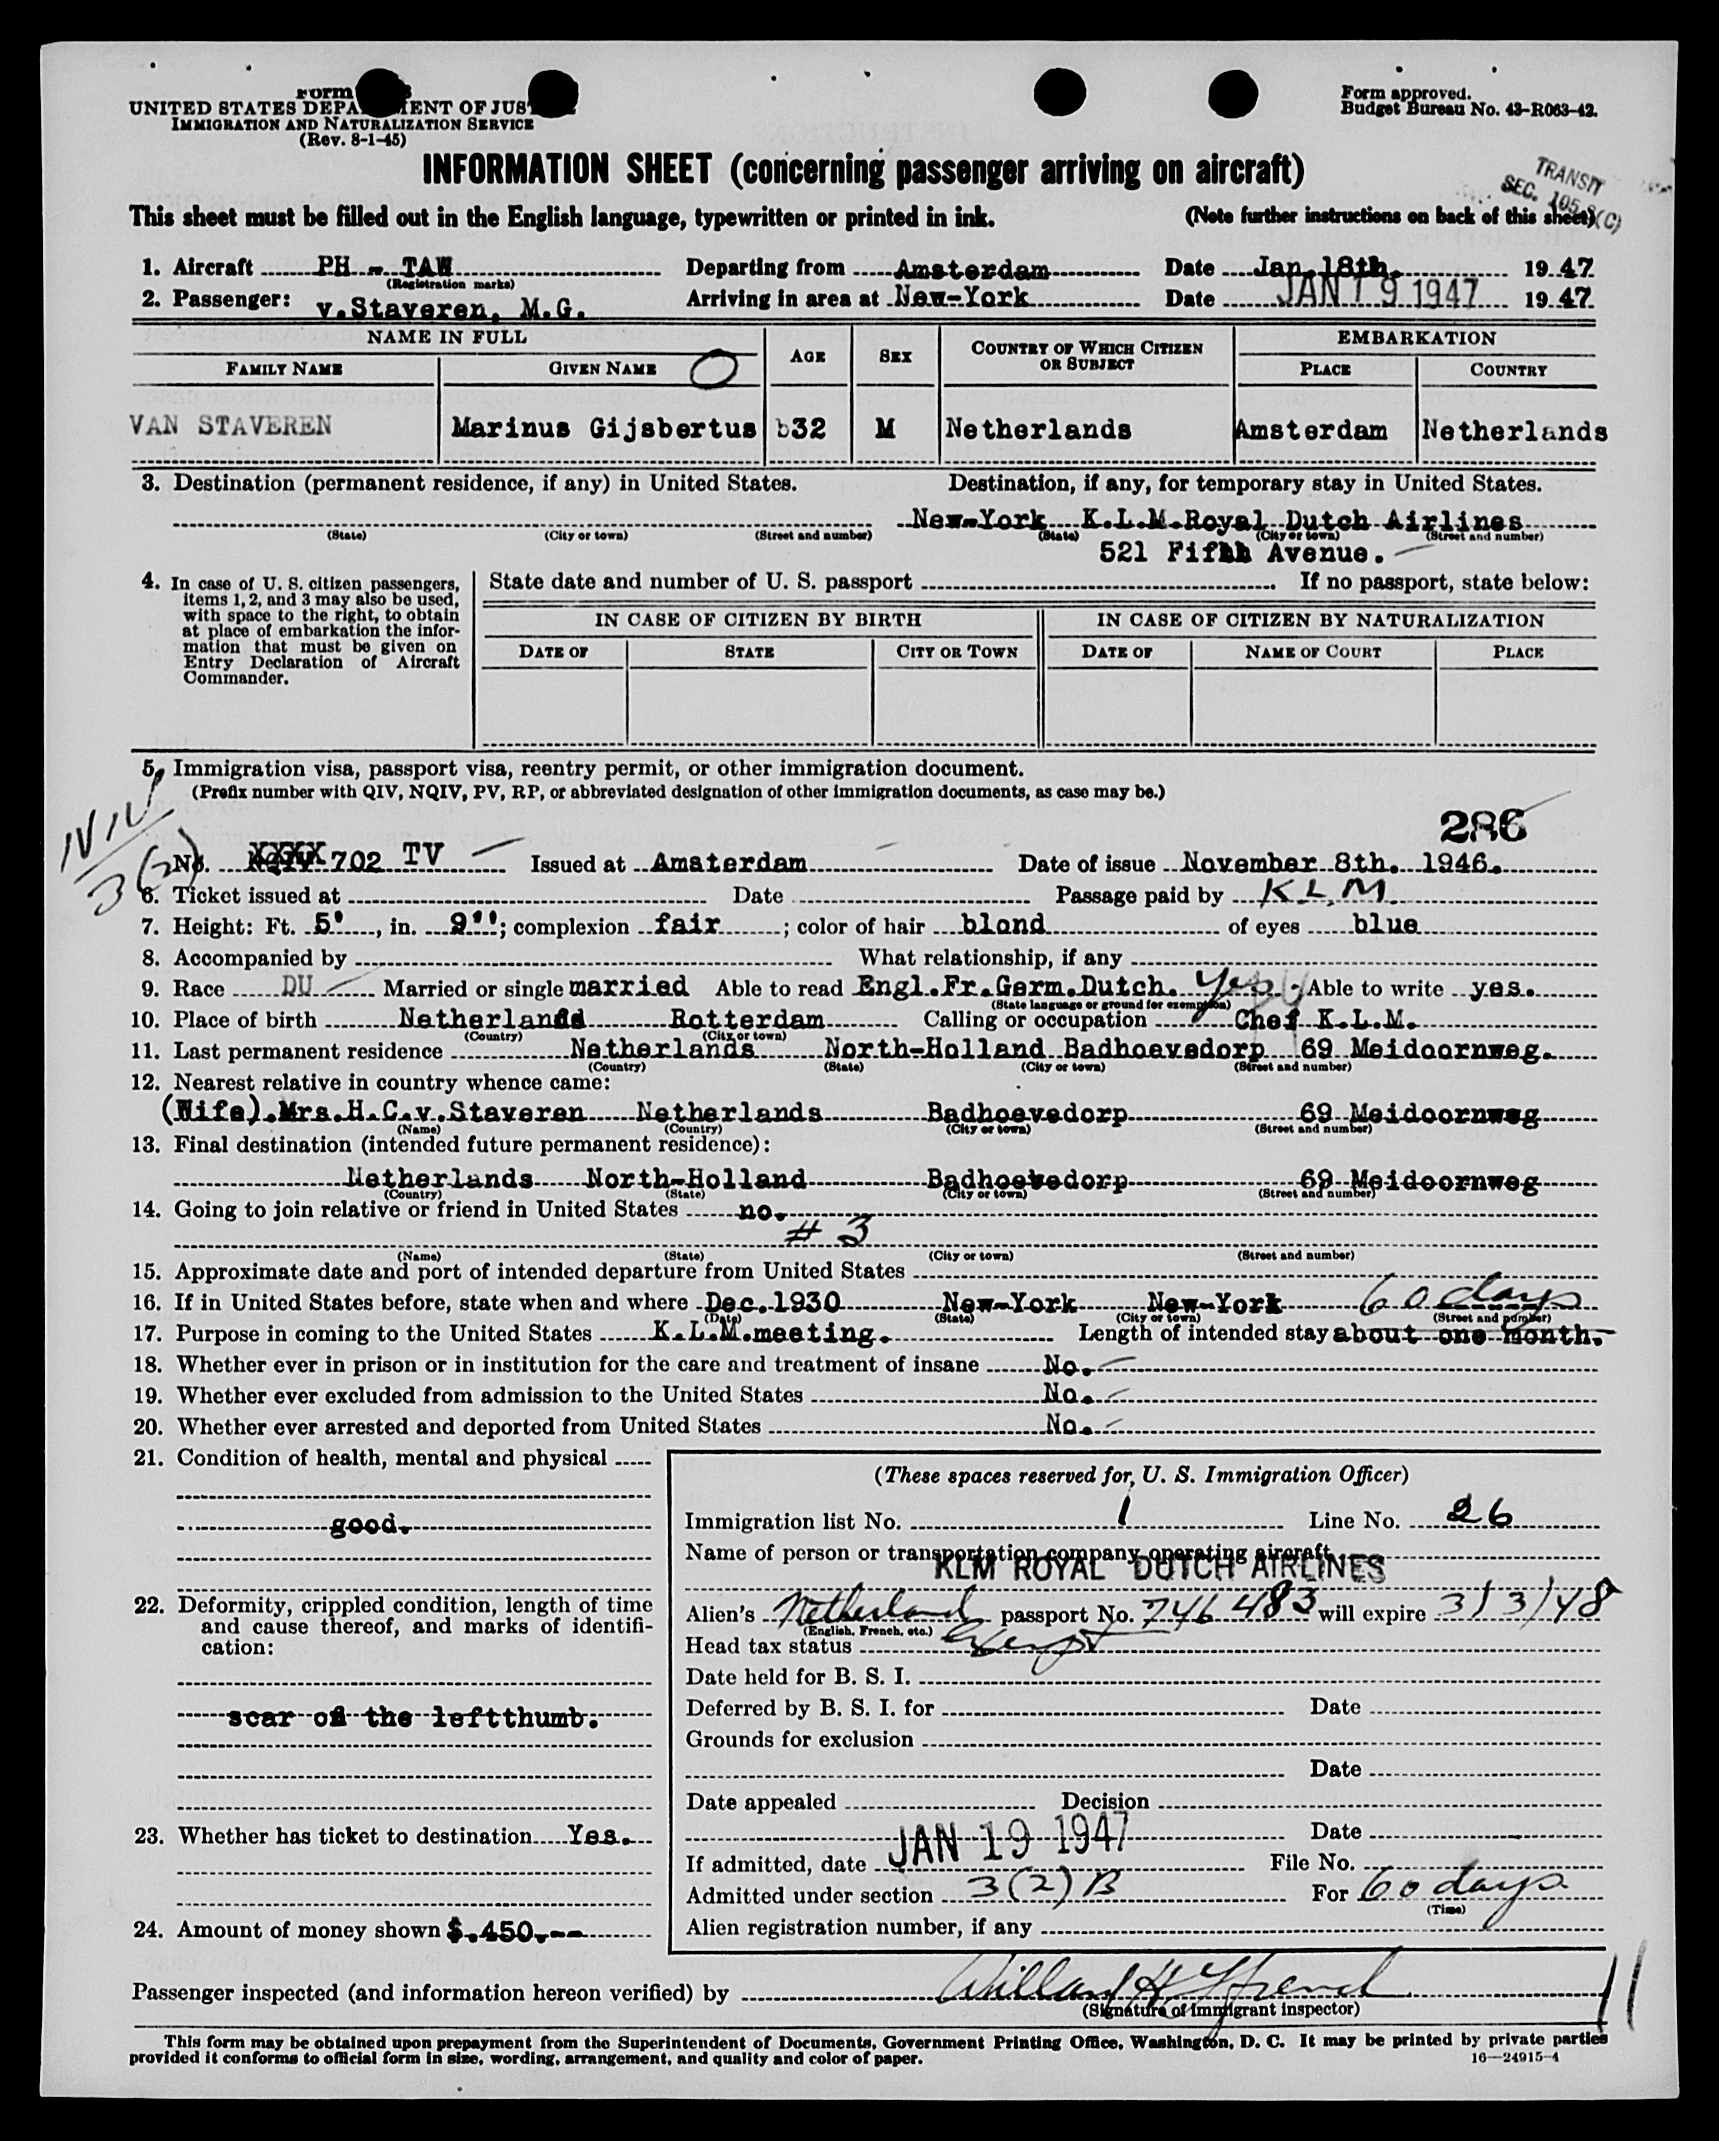 Form
UNITED STATES DEPA ENT OF JUS
IMMIGRATION AND NATURALIZATION SERVICE
(Rev. 8-1-45)
Form approved.
Budget Bureau No. 43-R063-42.
INFORMATION SHEET (concerning passenger arriving on aircraft)
TRANSIT
SEC. 105.3(C)
This sheet must be filled out in the English language, typewritten or printed in ink. (Note further instructions on back of this sheet)
1. Aircraft PH - TAW Departing from Amsterdam Date Jan. 18th. 1947
(Registration marks)
2. Passenger: v. Staveren, M.G. Arriving in area at New-York Date JAN 19 1947 1947
NAME IN FULL AGE SEX COUNTRY OF WHICH CITIZEN OR SUBJECT EMBARKATION
FAMILY NAME GIVEN NAME PLACE COUNTRY
VAN STAVEREN Marinus Gijsbertus b32 M Netherlands Amsterdam Netherlands
3. Destination (permanent residence, if any) in United States. Destination, if any, for temporary stay in United States.
New-York K.L.M. Royal Dutch Airlines
(State) (City or town) (Street and number) (State) (City or town) (Street and number)
521 Fifth Avenue.
4. In case of U. S. citizen passengers, items 1, 2, and 3 may also be used, with space to the right, to obtain at place of embarkation the information that must be given on Entry Declaration of Aircraft Commander.
State date and number of U. S. passport . If no passport, state below:
IN CASE OF CITIZEN BY BIRTH IN CASE OF CITIZEN BY NATURALIZATION
DATE OF STATE CITY OR TOWN DATE OF NAME OF COURT PLACE
5. Immigration visa, passport visa, reentry permit, or other immigration document.
(Prefix number with QIV, NQIV, PV, RP, or abbreviated designation of other immigration documents, as case may be.)
NIV
3(2)
286
No. XXXX 702 TV Issued at Amsterdam Date of issue November 8th. 1946.
6. Ticket issued at Date Passage paid by K.L.M.
7. Height: Ft. 5', in. 9''; complexion fair; color of hair blond of eyes blue
8. Accompanied by What relationship, if any
9. Race DU Married or single married Able to read Engl.Fr.Germ.Dutch. Yes Able to write yes.
(State language or ground for exemption)
10. Place of birth Netherlands Rotterdam Calling or occupation Chef K.L.M.
(Country) (City or town)
11. Last permanent residence Netherlands North-Holland Badhoevedorp 69 Meidoornweg.
(Country) (State) (City or town) (Street and number)
12. Nearest relative in country whence came:
(Wife). Mrs.H.C.v.Staveren Netherlands Badhoevedorp 69 Meidoornweg
(Name) (Country) (City or town) (Street and number)
13. Final destination (intended future permanent residence):
Netherlands North-Holland Badhoevedorp 69 Meidoornweg
(Country) (State) (City or town) (Street and number)
14. Going to join relative or friend in United States no.
# 3
(Name) (State) (City or town) (Street and number)
15. Approximate date and port of intended departure from United States
60 days
16. If in United States before, state when and where Dec.1930 New-York New-York
(Date) (State) (City or town) (Street and number)
17. Purpose in coming to the United States K.L.M.meeting. Length of intended stay about one month.
18. Whether ever in prison or in institution for the care and treatment of insane No.
19. Whether ever excluded from admission to the United States No.
20. Whether ever arrested and deported from United States No.
21. Condition of health, mental and physical
good.
22. Deformity, crippled condition, length of time and cause thereof, and marks of identification:
scar on the leftthumb.
23. Whether has ticket to destination Yes.
24. Amount of money shown $.450.--
(These spaces reserved for U. S. Immigration Officer)
Immigration list No. 1 Line No. 26
Name of person or transportation company operating aircraft
KLM ROYAL DUTCH AIRLINES
Alien's Netherland passport No. 746483 will expire 3/3/48
(English, French, etc.)
Head tax status Exempt
Date held for B. S. I.
Deferred by B. S. I. for Date
Grounds for exclusion
Date
Date appealed Decision
Date
If admitted, date JAN 19 1947 File No.
Admitted under section 3(2)B For 60 days
(Time)
Alien registration number, if any
Passenger inspected (and information hereon verified) by Willard H
(Signature of immigrant inspector)
11
This form may be obtained upon prepayment from the Superintendent of Documents, Government Printing Office, Washington, D. C. It may be printed by private parties
provided it conforms to official form in size, wording, arrangement, and quality and color of paper.
16—24915-4